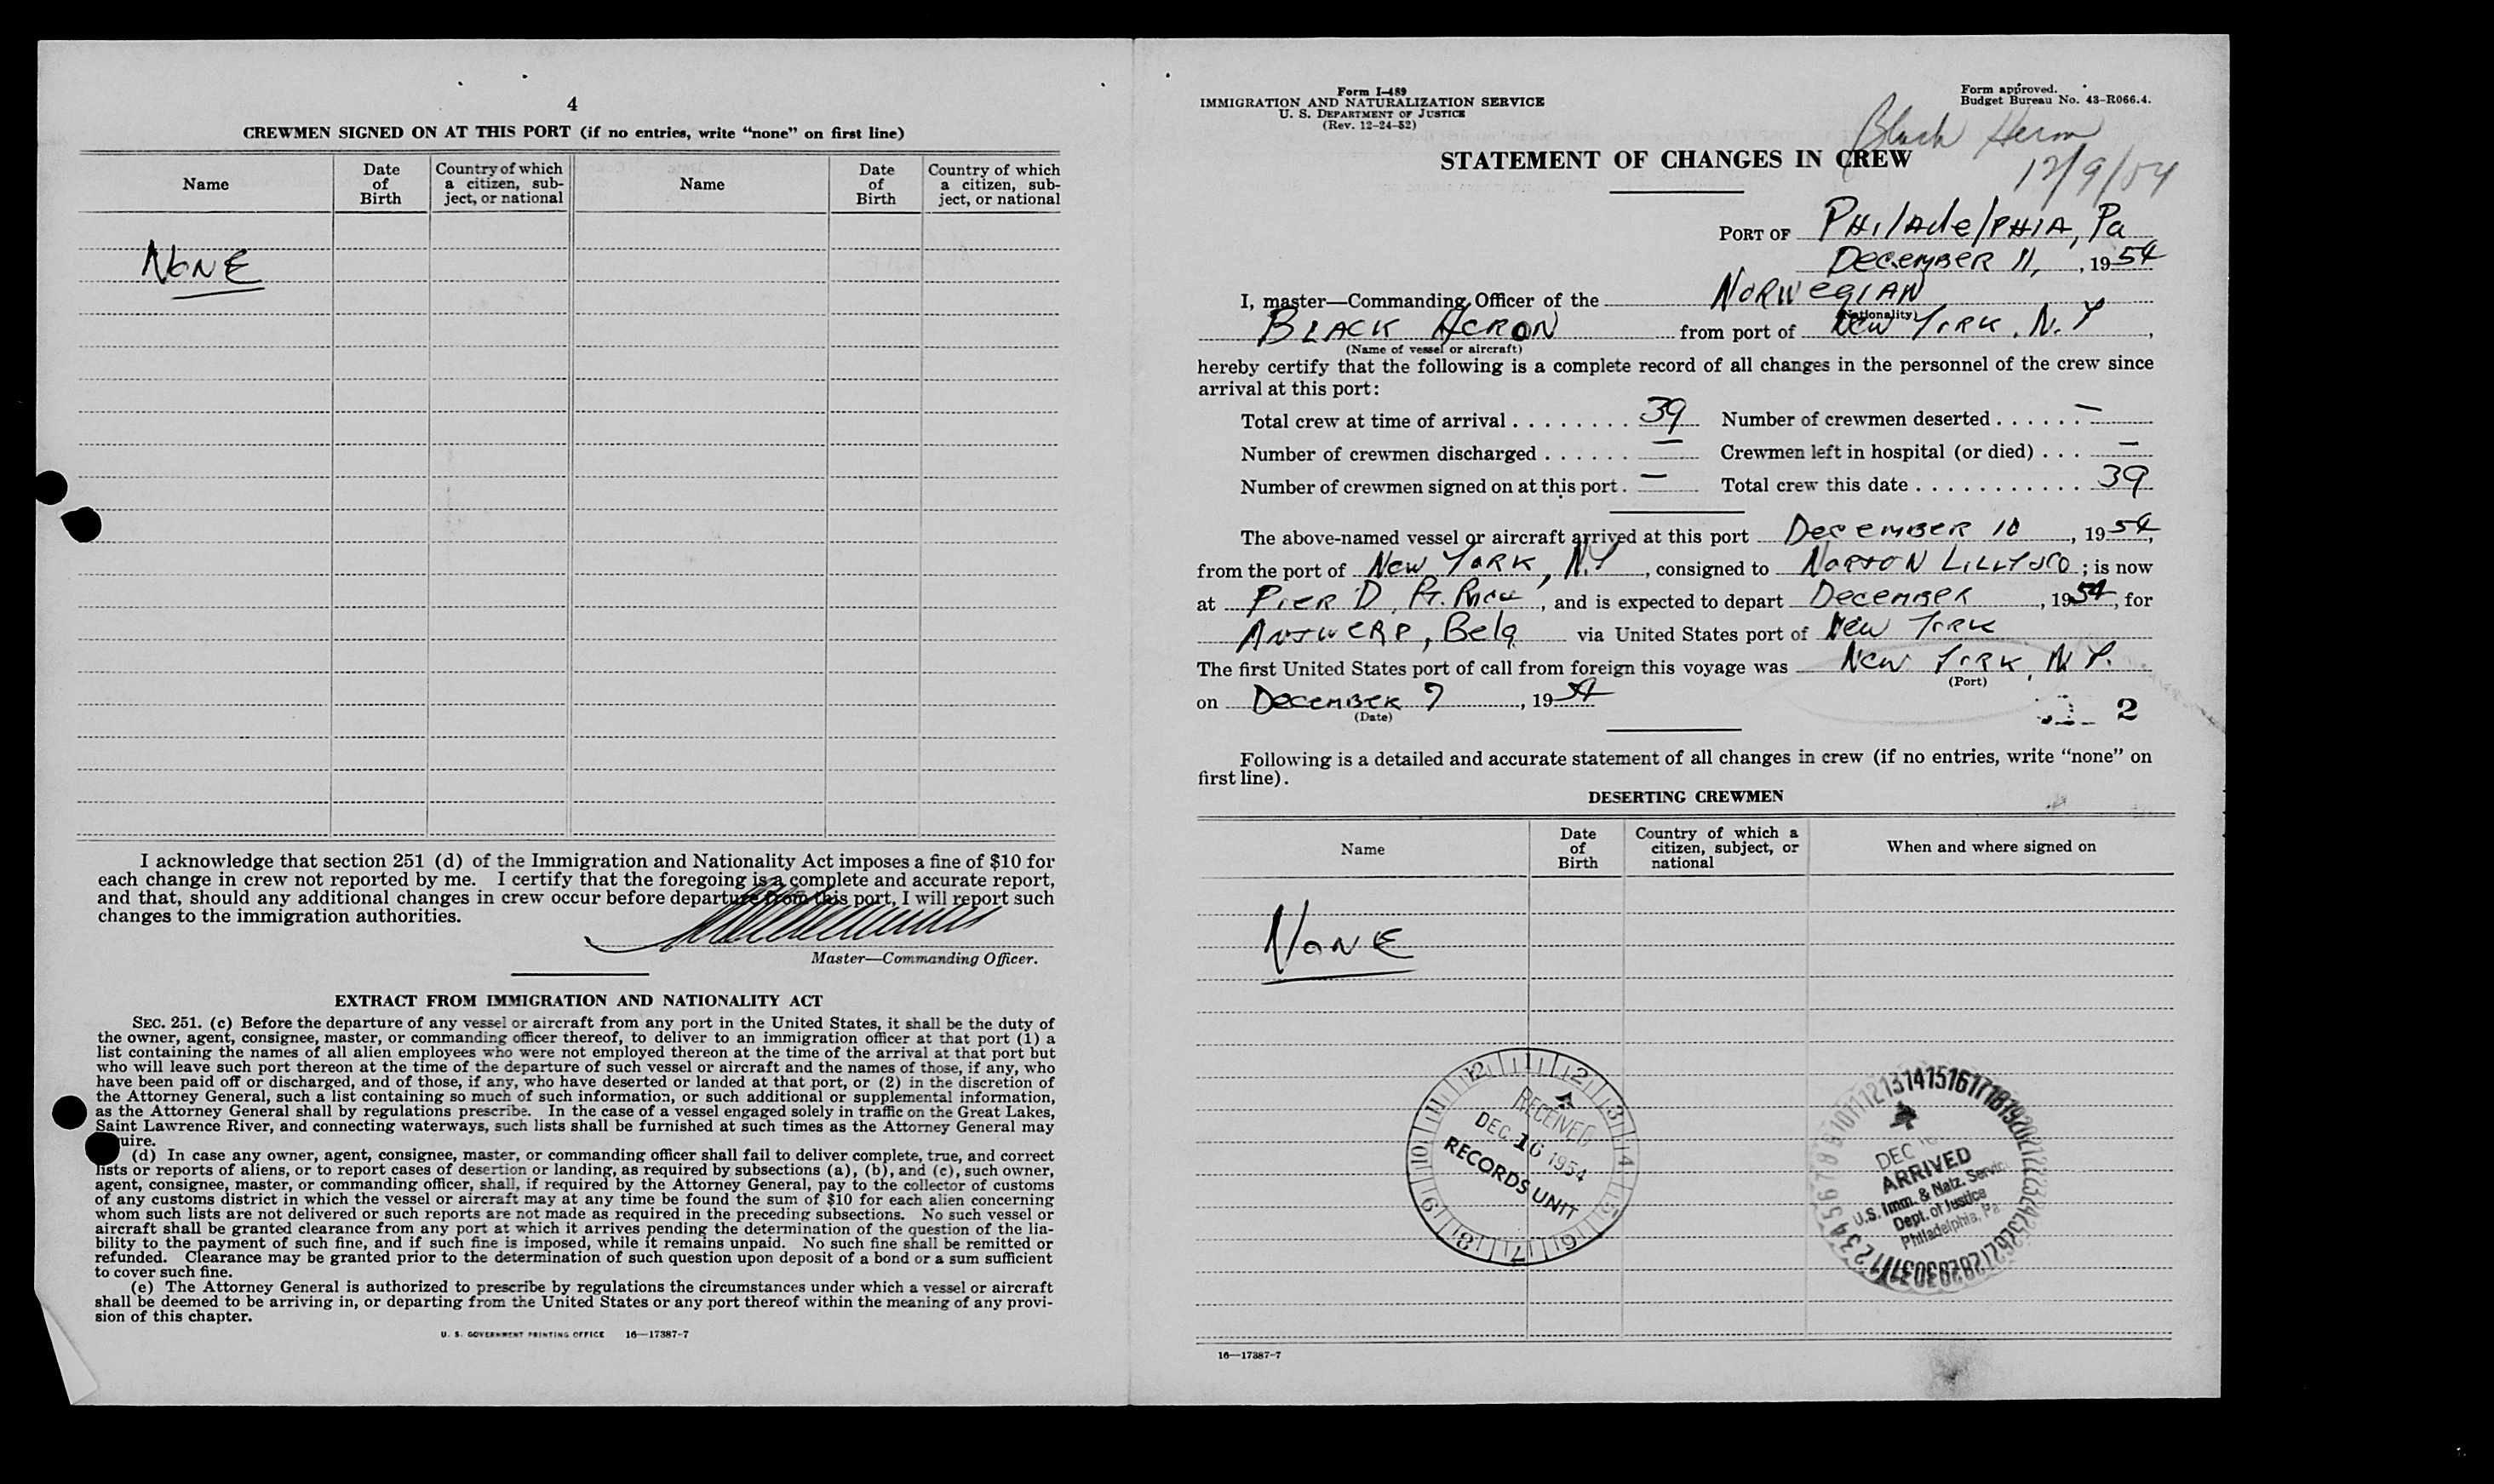 4
CREWMEN SIGNED ON AT THIS PORT (if no entries, write “none” on first line)
Name
Date of Birth
Country of which a citizen, sub-ject, or national
Name
Date of Birth
Country of which a citizen, sub-ject, or national
NONE
I acknowledge that section 251 (d) of the Immigration and Nationality Act imposes a fine of $10 for
each change in crew not reported by me. I certify that the foregoing is a complete and accurate report,
and that, should any additional changes in crew occur before departure from this port, I will report such
changes to the immigration authorities.
Master—Commanding Officer.
EXTRACT FROM IMMIGRATION AND NATIONALITY ACT
SEC. 251. (c) Before the departure of any vessel or aircraft from any port in the United States, it shall be the duty of
the owner, agent, consignee, master, or commanding officer thereof, to deliver to an immigration officer at that port (1) a
list containing the names of all alien employees who were not employed thereon at the time of the arrival at that port but
who will leave such port thereon at the time of the departure of such vessel or aircraft and the names of those, if any, who
have been paid off or discharged, and of those, if any, who have deserted or landed at that port, or (2) in the discretion of
the Attorney General, such a list containing so much of such information, or such additional or supplemental information,
as the Attorney General shall by regulations prescribe. In the case of a vessel engaged solely in traffic on the Great Lakes,
Saint Lawrence River, and connecting waterways, such lists shall be furnished at such times as the Attorney General may
quire.
(d) In case any owner, agent, consignee, master, or commanding officer shall fail to deliver complete, true, and correct
lists or reports of aliens, or to report cases of desertion or landing, as required by subsections (a), (b), and (c), such owner,
agent, consignee, master, or commanding officer, shall, if required by the Attorney General, pay to the collector of customs
of any customs district in which the vessel or aircraft may at any time be found the sum of $10 for each alien concerning
whom such lists are not delivered or such reports are not made as required in the preceding subsections. No such vessel or
aircraft shall be granted clearance from any port at which it arrives pending the determination of the question of the lia-
bility to the payment of such fine, and if such fine is imposed, while it remains unpaid. No such fine shall be remitted or
refunded. Clearance may be granted prior to the determination of such question upon deposit of a bond or a sum sufficient
to cover such fine.
(e) The Attorney General is authorized to prescribe by regulations the circumstances under which a vessel or aircraft
shall be deemed to be arriving in, or departing from the United States or any port thereof within the meaning of any provi-
sion of this chapter.
U. S. GOVERNMENT PRINTING OFFICE 16—17387-7
Form I-489
IMMIGRATION AND NATURALIZATION SERVICE
U. S. DEPARTMENT OF JUSTICE
(Rev. 12-24-52)
Form approved.
Budget Bureau No. 43-R066.4.
Black Heron
12/9/54
STATEMENT OF CHANGES IN CREW
PORT OF PHILAdelPHIA, Pa
DECEMBER 11, , 1954
I, master—Commanding Officer of the NORWEGIAN
(Nationality)
BLACK HERON from port of NEW YORK, N.Y ,
(Name of vessel or aircraft)
hereby certify that the following is a complete record of all changes in the personnel of the crew since
arrival at this port:
Total crew at time of arrival . . . . . . . . 39 Number of crewmen deserted . . . . . . —
Number of crewmen discharged . . . . . . — Crewmen left in hospital (or died) . . . —
Number of crewmen signed on at this port . — Total crew this date . . . . . . . . . . . . 39
The above-named vessel or aircraft arrived at this port DECEMBER 10 , 1954,
from the port of NEW YORK, N.Y , consigned to NORTON LILLY & CO ; is now
at PIER D, Pt. Rich , and is expected to depart DECEMBER , 1954, for
ANTWERP, Belg via United States port of NEW YORK
The first United States port of call from foreign this voyage was NEW YORK, N.Y.
(Port)
on DECEMBER 9 , 1954
(Date)
2
Following is a detailed and accurate statement of all changes in crew (if no entries, write “none” on
first line).
DESERTING CREWMEN
Name
Date of Birth
Country of which a citizen, subject, or national
When and where signed on
NONE
RECEIVED
DEC 16 1954
RECORDS UNIT
DEC
ARRIVED
U.S. Imm. & Natz. Service
Dept. of Justice
Philadelphia, Pa.
16—17387-7